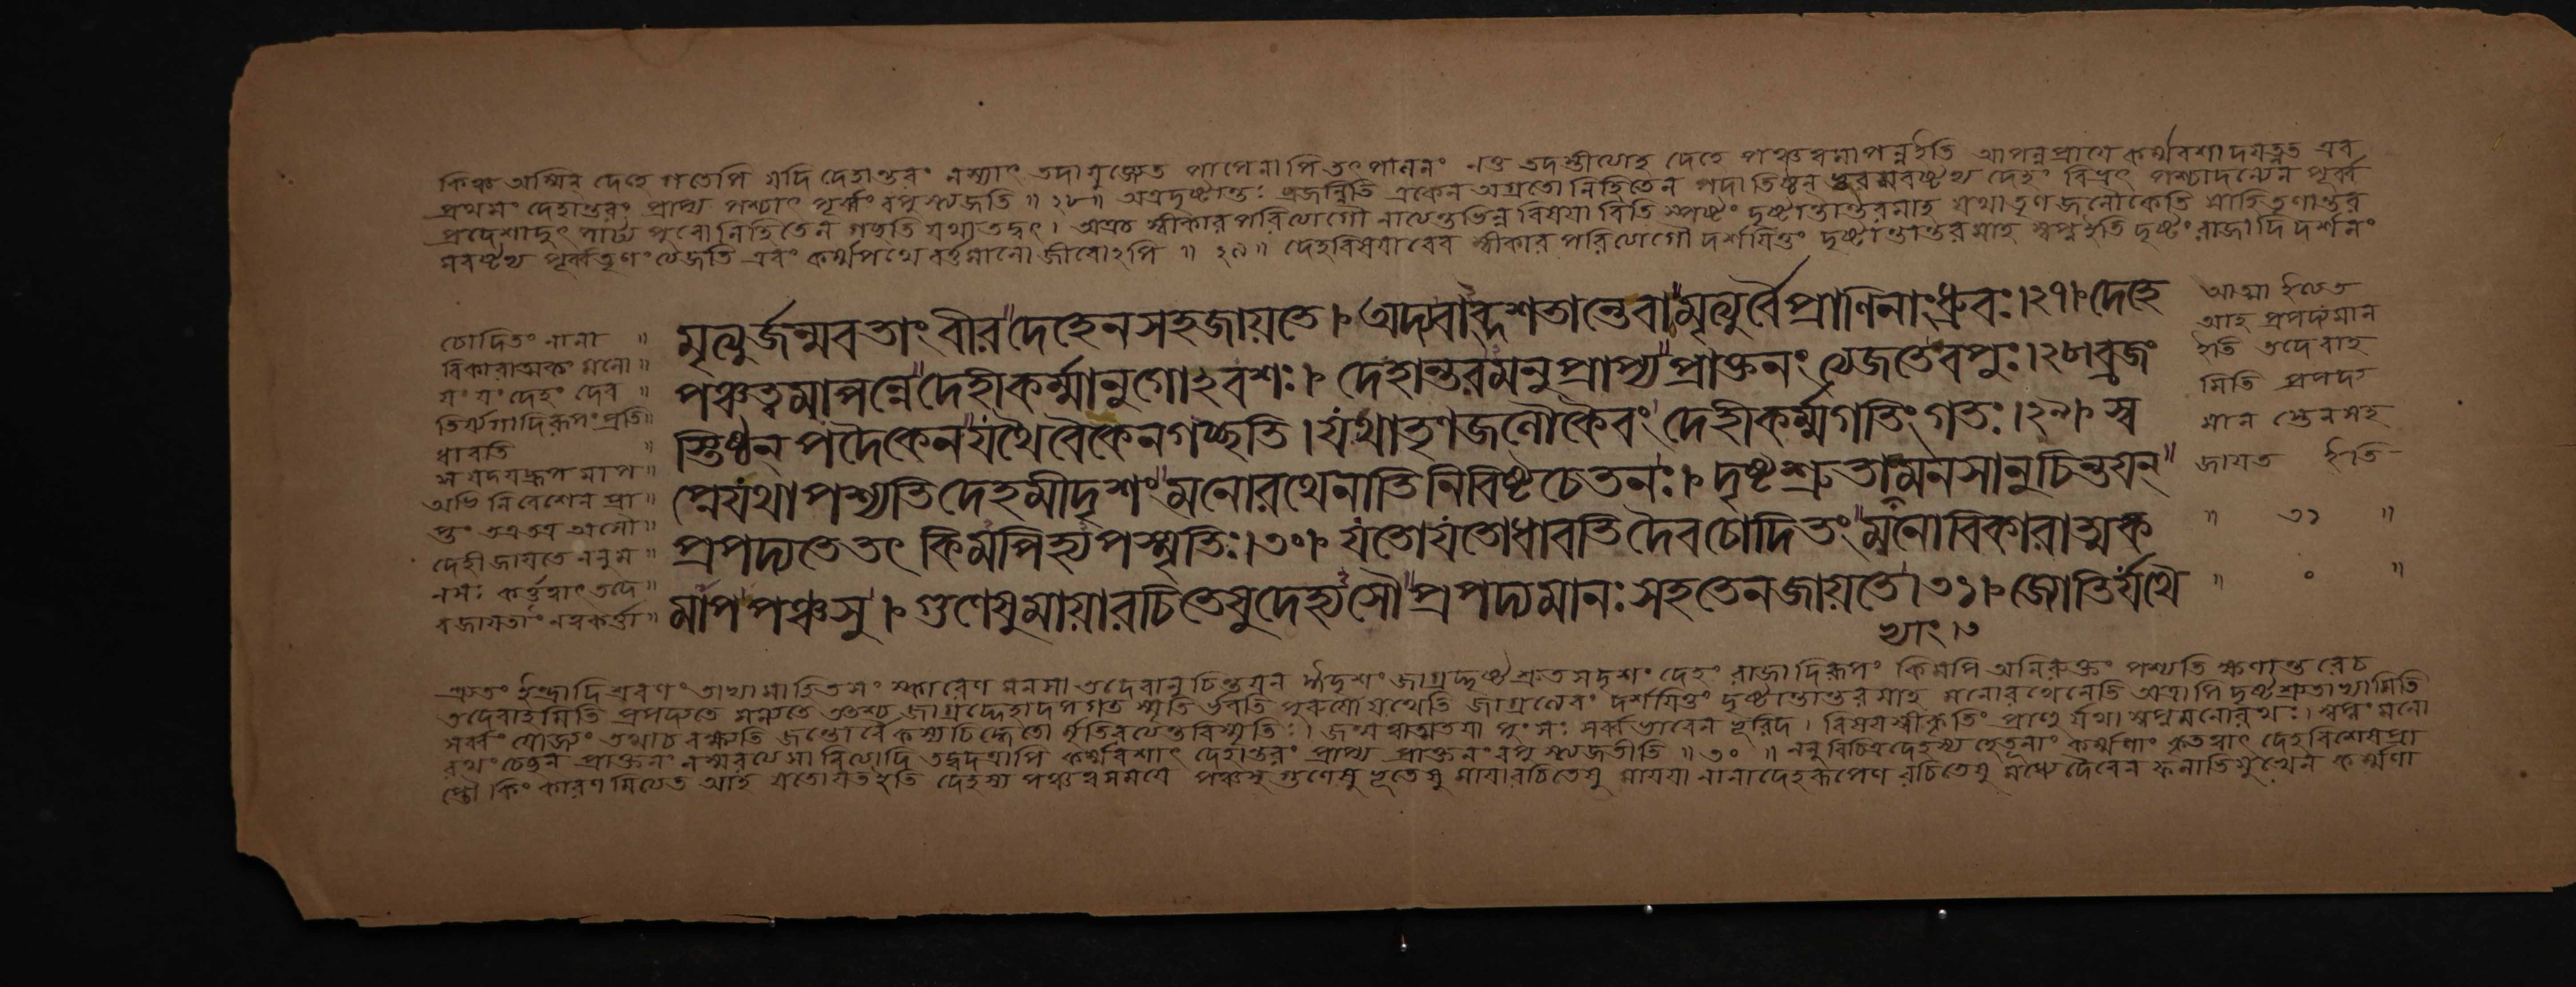 কিঞ্চ অস্মিন্ দেহে গতেপি যদি দেহান্তরং নস্যাৎ তদা যুজ্যেত পাপেনাপি তৎপালনং নত্ব তদস্তীত্যাহ দেহে পঞ্চত্বমাপন্নইতি আপন্নপ্রায়ে কর্ম্মবশাদযত্নত এব
প্রথমং দেহান্তরং প্রাপ্য পশ্চাৎ পূর্ব্বং বপুস্ত্যজতি ॥ ২৮॥ অত্রদৃষ্টান্তঃ ব্রজন্নিতি একেন অগ্রতো নিহিতেন পদা তিষ্ঠন্ ভুবমবষ্টভ্য দেহং বিভ্রৎ পশ্চাদন্যেন পূর্ব্ব
প্রদেশাদুৎপাট্য পুরো নিহিতেন গচ্ছতি যথা তদ্বৎ। অত্রচ স্বীকার পরিত্যাগৌ নাত্যন্তভিন্ন বিষয়া বিতি স্পষ্টং দৃষ্টান্তান্তরমাহ যথা তৃণ জলৌকেতি সাহি তৃণান্তর
মবষ্টভ্য পূর্ব্বতৃণং ত্যজতি এবং কর্ম্মপথে বর্ত্তমানো জীবোঽপি ॥ ২৯॥ দেহবিষয়াবেব স্বীকার পরিত্যাগৌ দর্শয়িতুং দৃষ্টান্তান্তরমাহ স্বপ্নইতি দৃষ্টং রাজাদি দর্শনং
মৃত্যুর্জন্মবতাং বীর দেহেন সহ জায়তে। অদ্যবাব্দশতান্তেবা মৃত্যুর্বৈ প্রাণিনাং ধ্রুবঃ। ২৭। দেহে
পঞ্চত্বমাপন্নে দেহী কর্ম্মানুগোঽবশঃ। দেহান্তরমনুপ্রাপ্য প্রাক্তনং ত্যজতে বপুঃ। ২৮। ব্রজং
স্তিষ্ঠন্ পদৈকেন যথৈ বৈকেন গচ্ছতি। যথা তৃণজলৌকৈবং দেহী কর্ম্মগতিং গতঃ। ২৯। স্ব
প্নে যথা পশ্যতি দেহমীদৃশং মনোরথেনাভিনিবিষ্টচেতনঃ। দৃষ্টশ্রুতাভ্যাং মনসানুচিন্তয়ন্
প্রপদ্যতে তৎ কিমপিহ্যপস্মৃতিঃ। ৩০। যতো যতো ধাবতি দৈবচোদিতং মনো বিকারাত্মক
মাপ পঞ্চসু। গুণেষু মায়ারচিতেষু দেহ্যসৌ প্রপদ্যমানঃ সহ তেন জায়তে। ৩১। জ্যোতির্যথৈ
ভ্যাং। ৩
চোদিতং নানা ॥
বিকারাত্মকং মনো ॥
যং যং দেহং দেব ॥
তির্য্যগাদিরূপং প্রতি ॥
ধাবতি ॥
স যদযদ্রূপ মাপ ॥
অভি নিবেশেন প্রা ॥
প্তং তত্রতত্র অসৌ ॥
দেহী জায়তে ননু ম ॥
নসঃ কর্ত্তৃত্বাৎ তদে ॥
ব জায়তাং নত্বকর্ত্তা ॥
আত্মা ইত্যত
আহ প্রপদ্যমান
ইতি তদেবাহ
মিতি প্রপদ্য
মান স্তেনসহ
জায়ত ইতি
॥ ৩১ ॥
শ্রুতং ইন্দ্রাদি শ্রবণং তাভ্যামাহিতসংস্কারেণ মনসা তদেবানুচিন্তয়ন্ ঈদৃশং জাগ্রদ্দৃষ্টশ্রুতসদৃশং দেহং রাজাদিরূপং কিমপি অনিরুক্তং পশ্যতি ক্ষণান্তরেচ
তদেবাহমিতি প্রপদ্যতে মন্যতে ততশ্চ জাগ্রদ্দেহাদপগত স্মৃতি র্ভবতি পুরুষো যথেতি জাগ্রত্যেবং দর্শয়িতুং দৃষ্টান্তান্তরমাহ মনোরথেনেতি অত্রাপি দৃষ্টশ্রুতাভ্যামিতি
সর্ব্বং যোজ্যং তথাচ বক্ষ্যতি জন্তোর্বৈ কস্যচিদ্ধেতো র্মৃত্যুরত্যন্তবিস্মৃতিঃ। জন্ম ত্বাত্মতয়া পুংসঃ সর্ব্বভাবেন ভূরিদ। বিষয়স্বীকৃতিং প্রাহু র্যথা স্বপ্নমনোরথঃ। স্বপ্নং মনো
রথং চেত্থং প্রাক্তনং নস্মরত্যসা বিত্যাদি তদ্বদত্রাপি কর্ম্মবশাৎ দেহান্তরং প্রাপ্য প্রাক্তনং বপু স্ত্যজতীতি ॥ ৩০ ॥ ননু বিচিত্রদেহস্য হেতূনাং কর্ম্মণাং কৃতত্বাৎ দেহ বিশেষপ্রা
প্তৌ কিং কারণ মিত্যত আহ যতোযত ইতি দেহস্য পঞ্চত্বসময়ে পঞ্চসু গুণেষু ভূতেষু মায়ারচিতেষু মায়য়া নানাদেহরূপেণ রচিতেষু মধ্যে দৈবেন ফলাভিমুখেন কর্ম্মণা